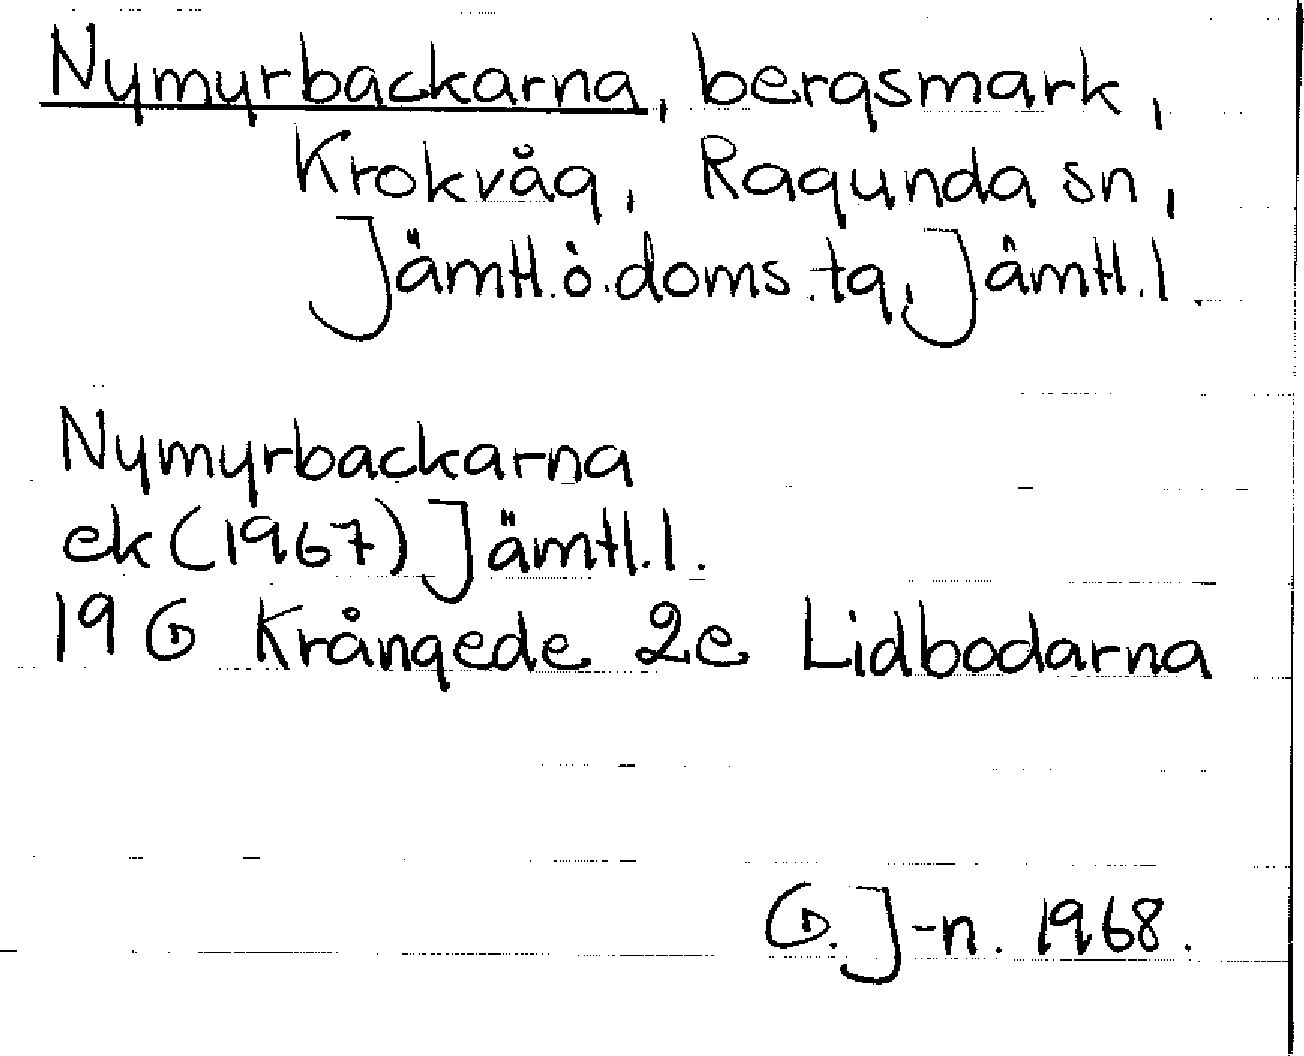 Nymyrbackarna, bergsmark,
Krokvåg, Ragunda sn,
Jämtl.ö.doms.tg, Jämtl.l
Nymyrbackarna
ek(1967) Jämtl.l.
19 G Krångede 2e Lidbodarna
G. J-n. 1968.